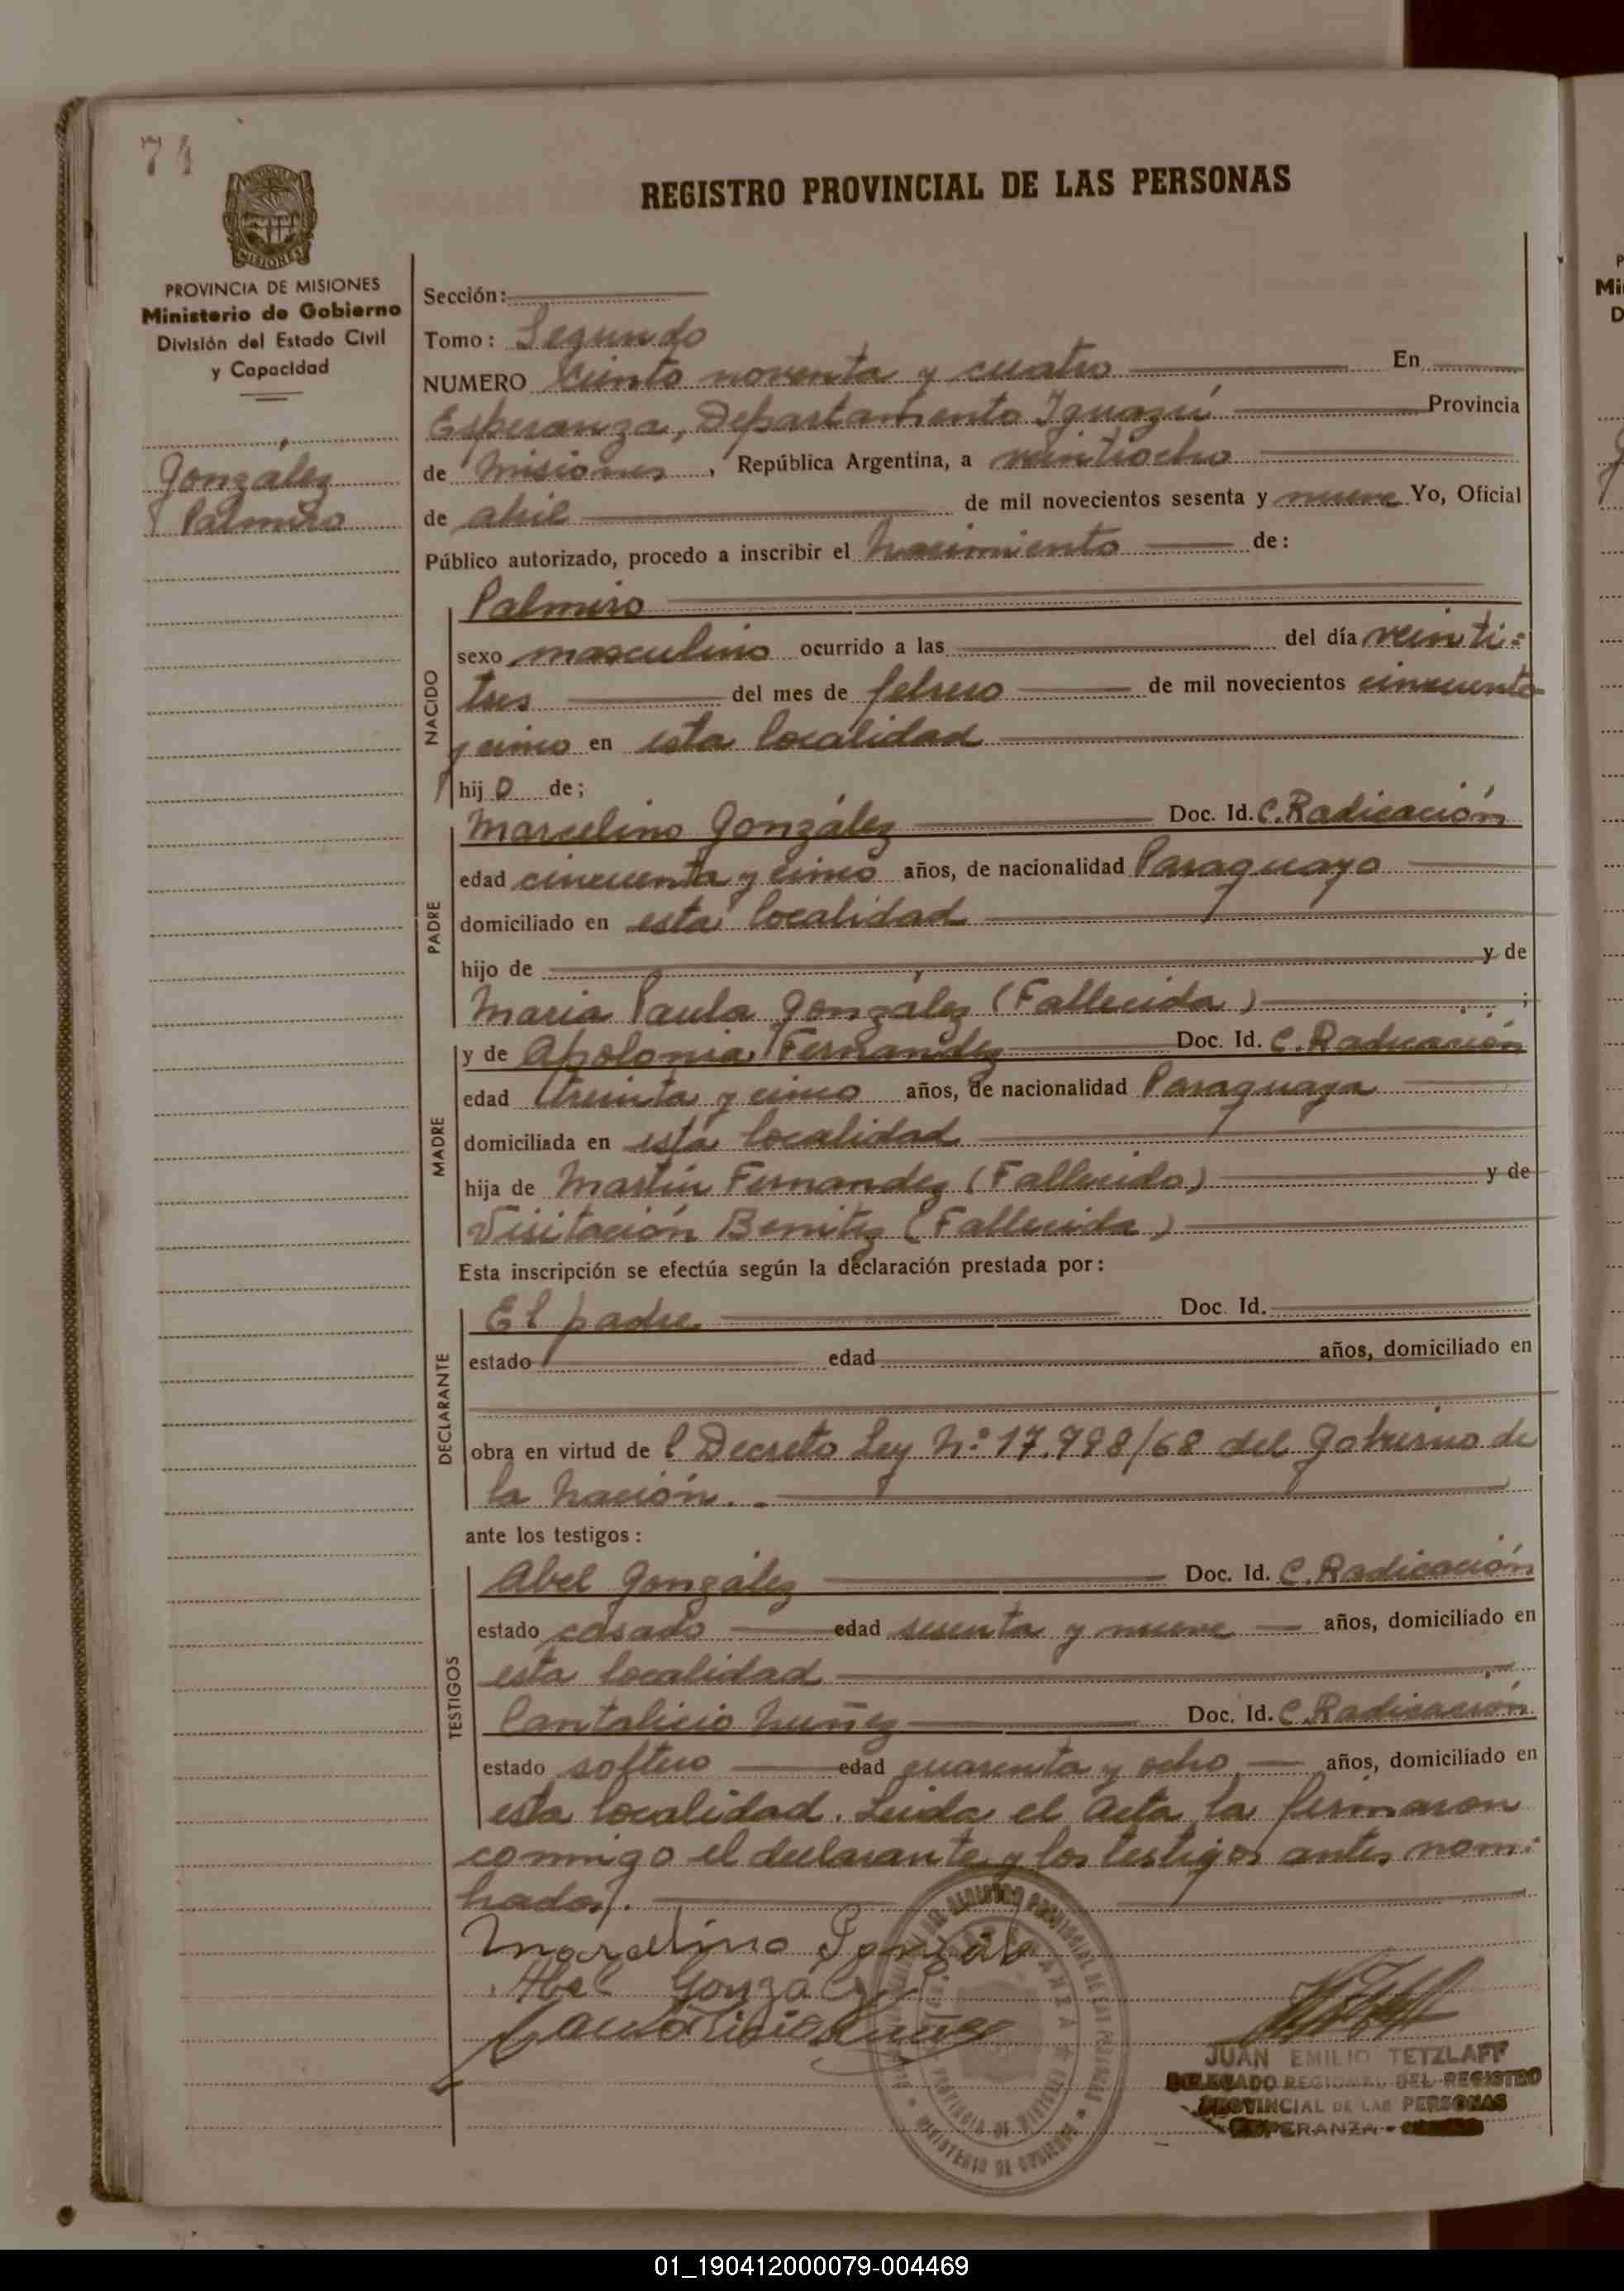 74
REGISTRO PROVINCIAL DE LAS PERSONAS
MISIONES
PROVINCIA DE MISIONES
Ministerio de Gobierno
División del Estado Civil
y Capacidad
González
Palmiro
Sección:
Tomo: Segundo
NUMERO Ciento noventa y cuatro En
Esperanza, Departamento Iguazú Provincia
de Misiones, República Argentina, a veintiocho
de abril de mil novecientos sesenta y nueve Yo, Oficial
Público autorizado, procedo a inscribir el Nacimiento de:
NACIDO
Palmiro
sexo masculino ocurrido a las del día veinti=
tres del mes de febrero de mil novecientos cincuenta
y cinco en esta localidad
hijo de;
PADRE
Marcelino González Doc. Id. C. Radicación
edad cincuenta y cinco años, de nacionalidad Paraguayo
domiciliado en esta localidad
hijo de y de
Maria Paula González (Fallecida);
MADRE
y de Apolonia Fernandez Doc. Id. C. Radicación
edad treinta y cinco años, de nacionalidad Paraguaya
domiciliada en esta localidad
hija de Martín Fernandez (Fallecido) y de
Visitación Benitez (Fallecida)
Esta inscripción se efectúa según la declaración prestada por:
DECLARANTE
El padre Doc. Id.
estado edad años, domiciliado en
obra en virtud de l Decreto Ley Nº 17.998/68 del Gobierno de
la Nación.-
ante los testigos:
TESTIGOS
Abel González Doc. Id. C. Radicación
estado casado edad sesenta y nueve años, domiciliado en
esta localidad
Cantalicio Nuñez Doc. Id. C. Radicación
estado soltero edad cuarenta y ocho años, domiciliado en
esta localidad. Leida el Acta la firmaron
conmigo el declarante y los testigos antes nomi-
nados.
Marcelino Gonzále
Abel González
Cantalicio Nuñez
JUAN EMILIO TETZLAFF
DELEGADO REGIONAL DEL REGISTRO
PROVINCIAL DE LAS PERSONAS
ESPERANZA -
MINISTERIO DE GOBIERNO
PROVINCIA DE MISIONES
01_190412000079-004469